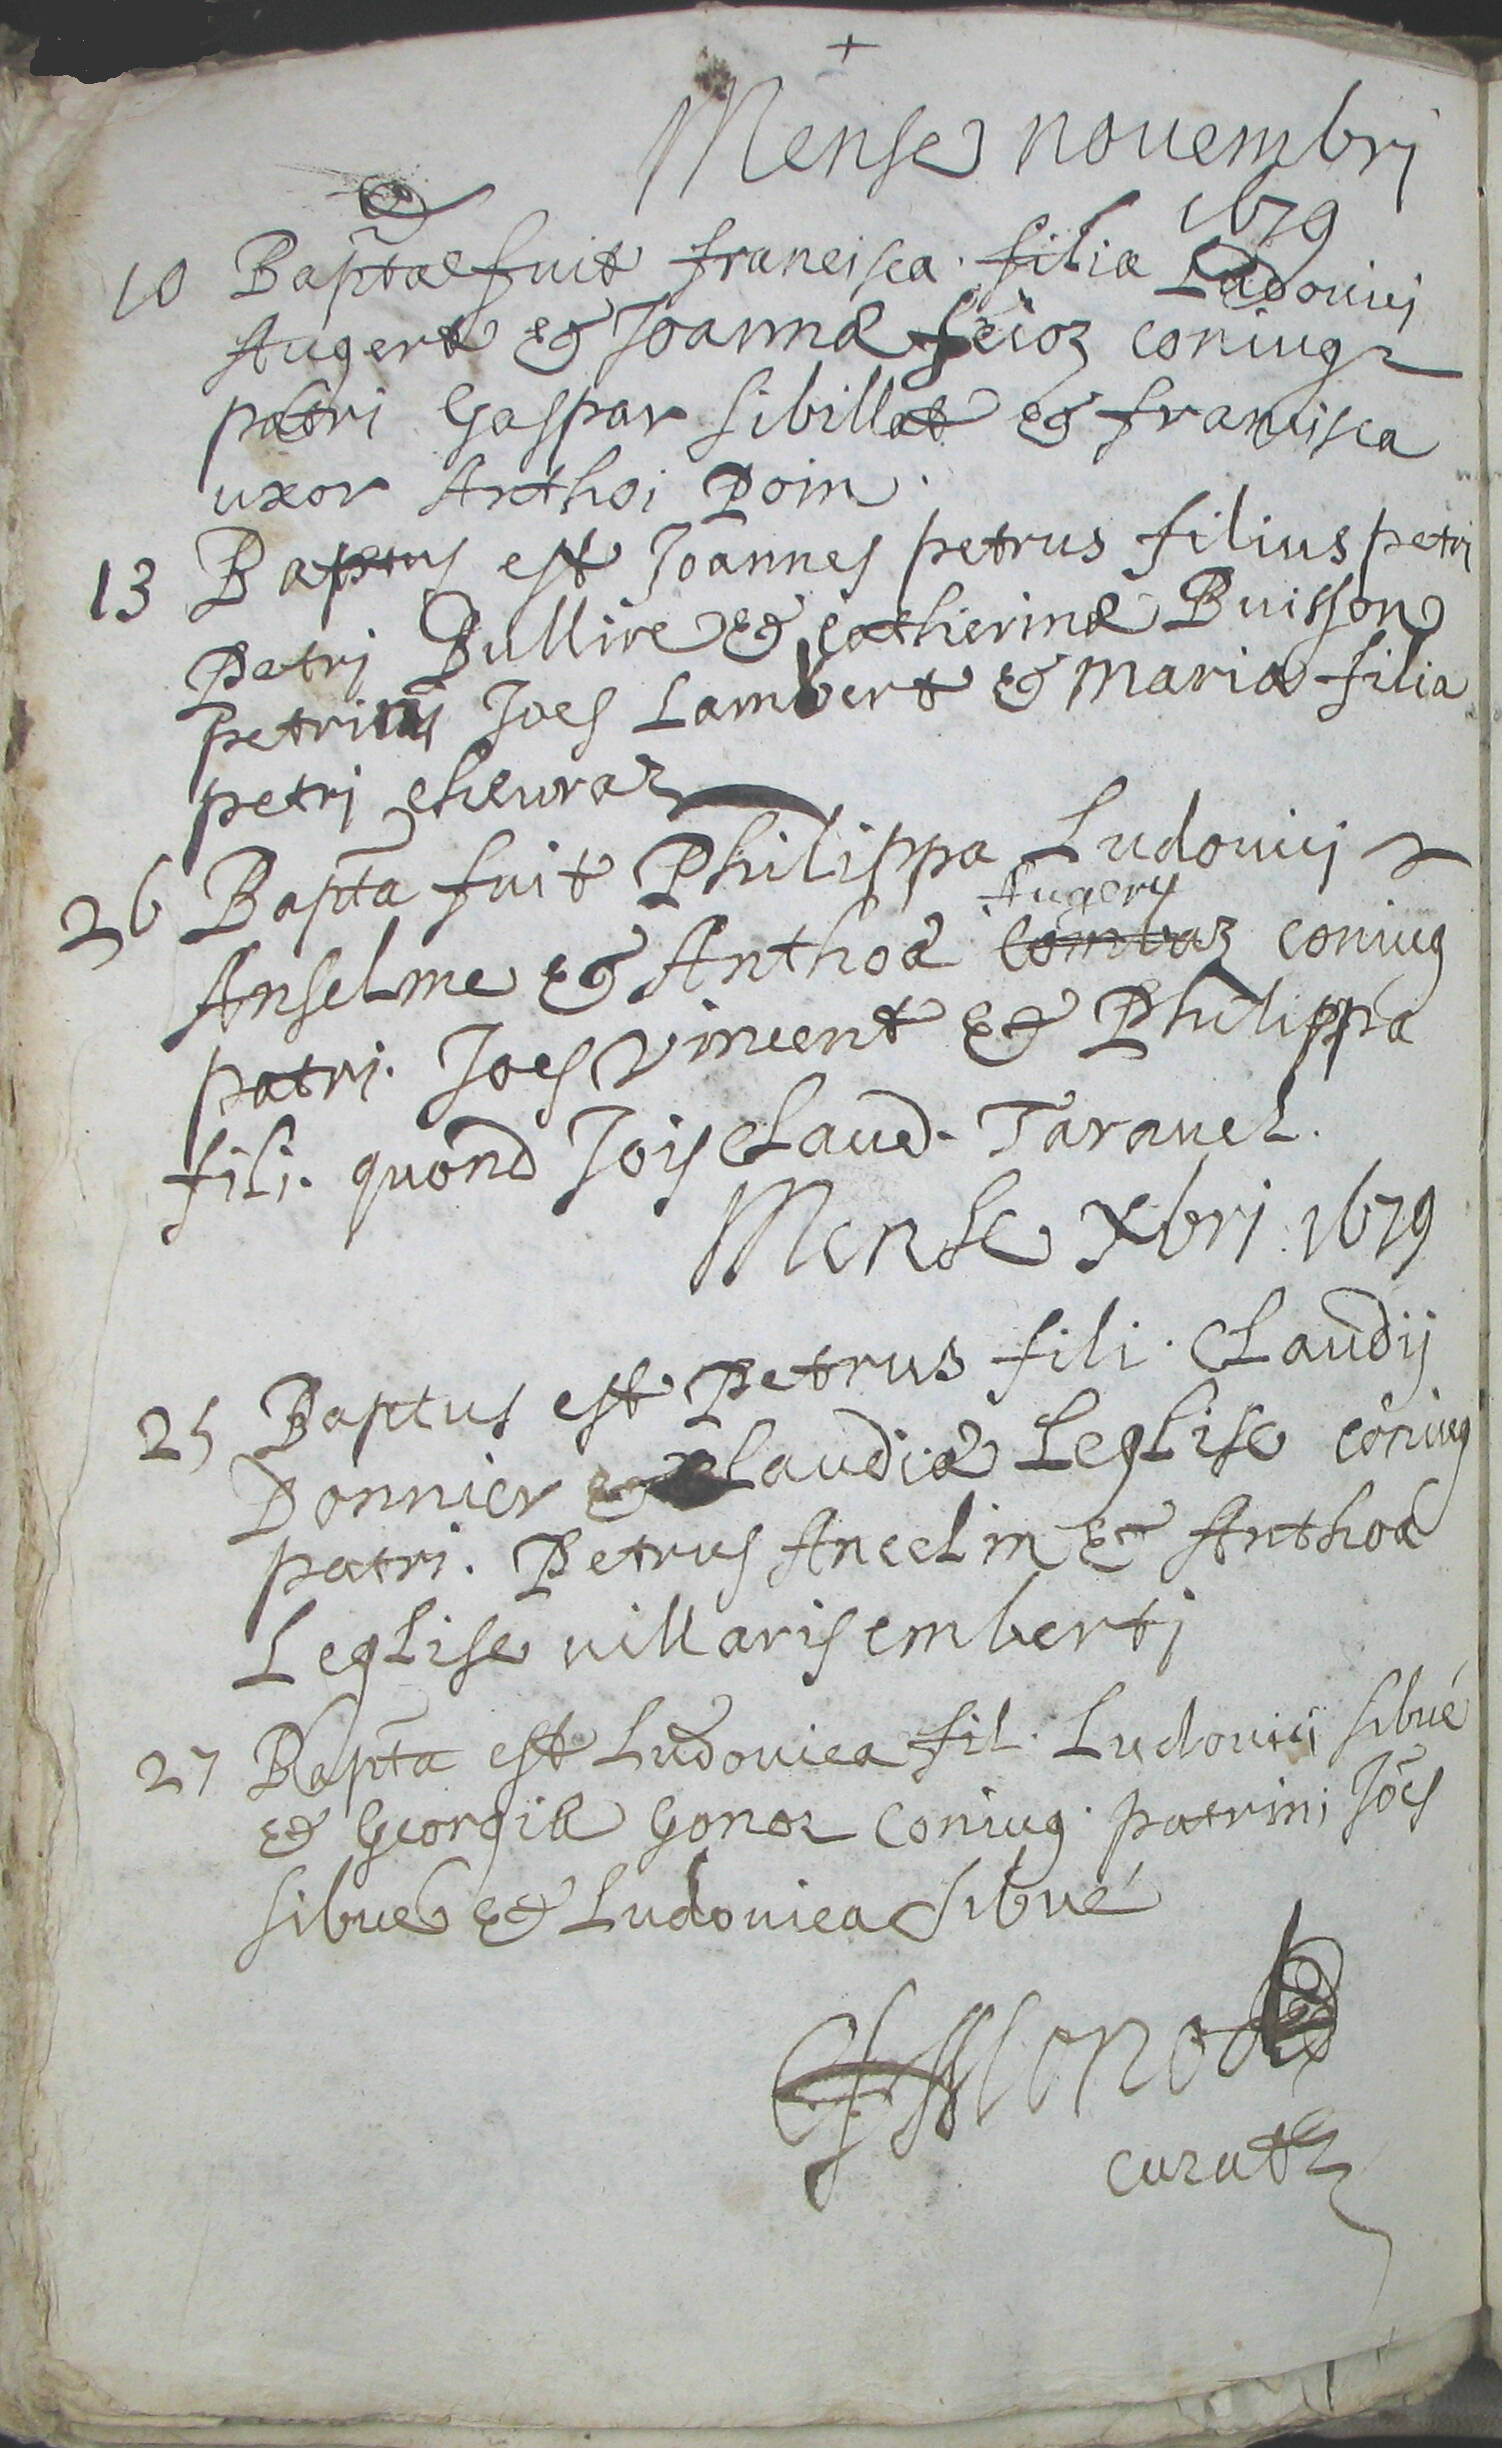 +
Mense novembrj
1679
10 Bapta fuit francisca filia Ludovicj
Augert & Joannæ feioz coniug
patri Gaspar Sibillat & francisca
uxor Anthoi Poin.
13 Baptus est Joannes petrus filius petri
Petrj Bullire & catherinæ Buisson
petrini Joes Lambert & maria filia
petrj cheuraz
26 Bapta fuit Philippa Ludovicj
Augery
Anselme & Anthoa Combaz coniug
patri. Joes Vincent & Philippa
fili. quond Jois Claud. Taravel.
Mense Xbri 1679
25 Baptus est Petrus fili. Claudij
Donnier & Claudiæ Leglise coniug
patri. Petrus Ancelin & Anthoa
Leglise villarisembertj
27 Bapta est Ludovica fil. Ludovicj Sibué
& Georgiæ Gonoz coniug. patrini Joes
Sibué & Ludovica Sibué